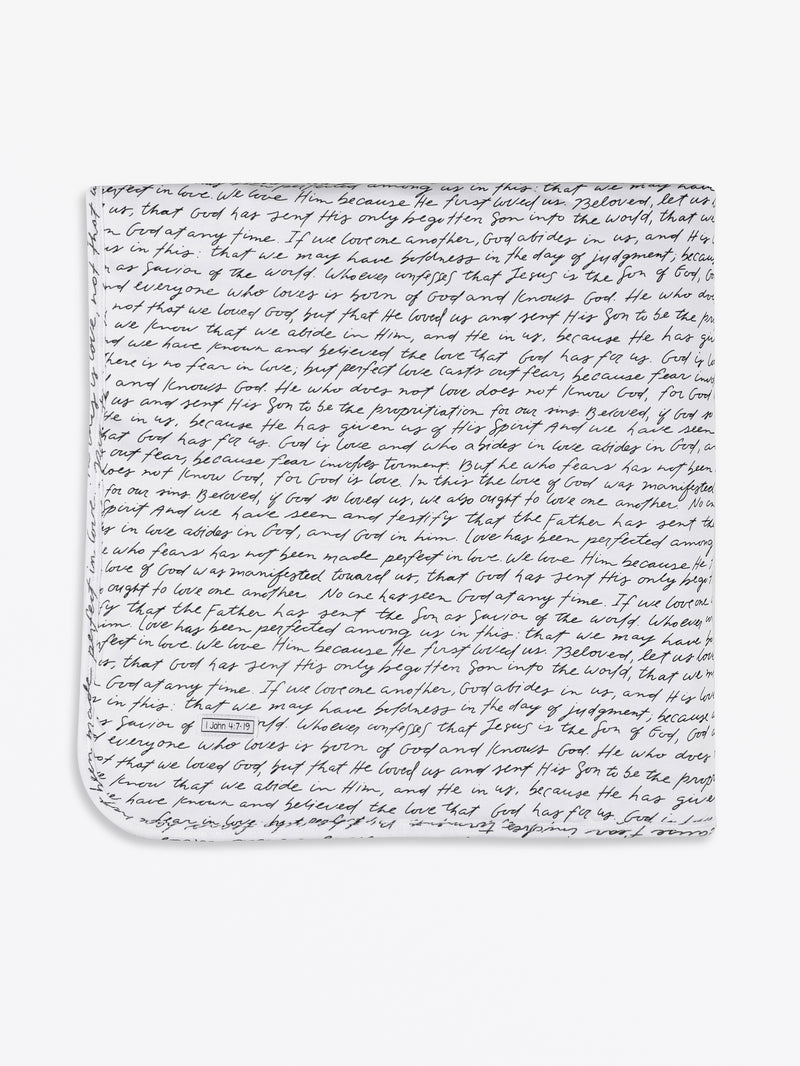 been perfected among us in this: that we may have
perfect in love. We love Him because He first loved us. Beloved, let us
us, that God has sent His only begotten Son into the world, that we
God at any time. If we love one another, God abides in us, and His
us in this: that we may have boldness in the day of judgment, because
as Savior of the world. Whoever confesses that Jesus is the Son of God,
and everyone who loves is born of God and knows God. He who does
not that we loved God, but that He loved us and sent His Son to be the
we know that we abide in Him, and He in us, because He has
and we have known and believed the love that God has for us. God is
There is no fear in love; but perfect love casts out fear, because fear
and knows God. He who does not love does not know God, for God
us and sent His Son to be the propritiation for our sins Beloved, if God so
He in us, because He has given us of His Spirit And we have seen
that God has for us. God is love and who abides in love abides in God,
out fear, because fear involves torment. But he who fears has not been
does not know God, for God is love. In this the love of God was manifested
for our sins Beloved, if God so loved us, we also ought to love one another. No
Spirit And we have seen and testify that the Father has sent the
in love abides in God, and God in him. Love has been perfected among
who fears has not been made perfect in love. We love Him because He
love of God was manifested toward us, that God has sent His only
ought to love one another No one has seen God at any time. If we love one
that the Father has sent the Son as Savior of the world. Whoever
him. Love has been perfected among us in this: that we may have
perfect in love. We love Him because He first loved us. Beloved, let us love
us, that God has sent His only begotten Son into the world, that we
God at any time. If we love one another, God abides in us, and His
in this: that we may have boldness in the day of judgment, because
Savior of
1 John 4:7-19
Whoever confesses that Jesus is the Son of God,
everyone who loves is born of God and knows God. He who does
not that we loved God, but that He loved us and sent His Son to be the
know that we abide in Him, and He in us, because He has
have known and believed the love that God has for us. God is
fear in love
been made perfect in love
is love, not that